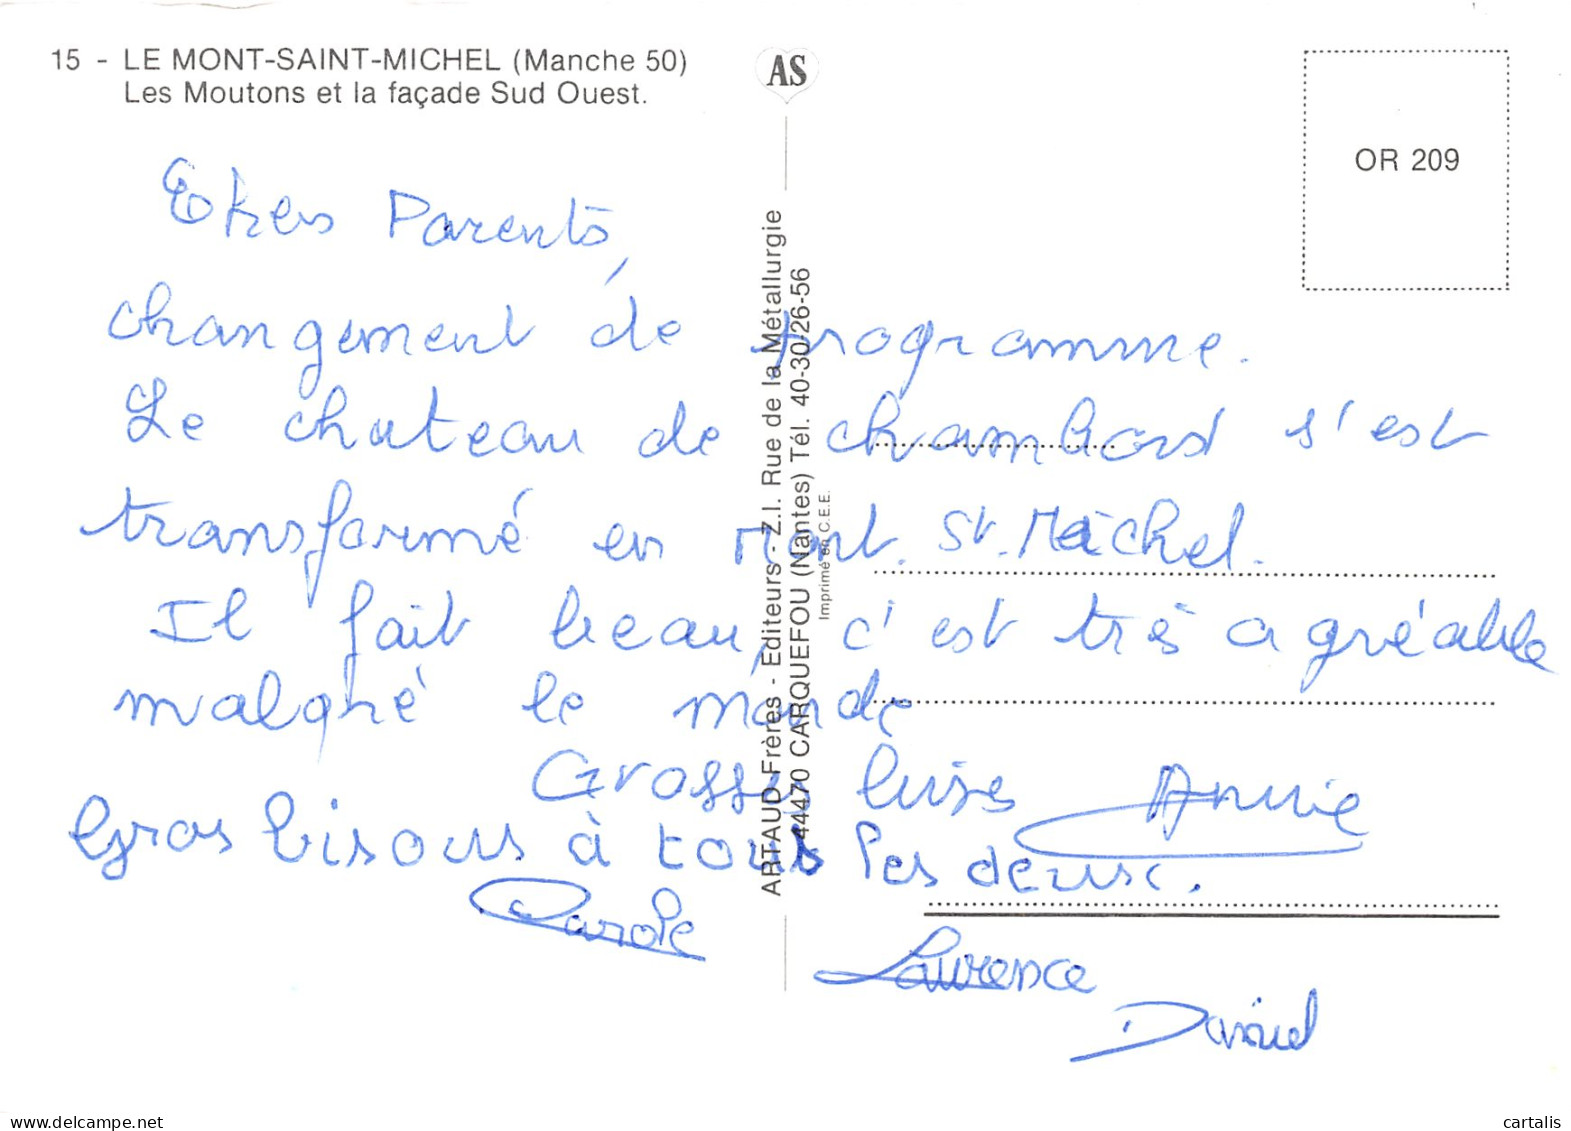 15 - LE MONT-SAINT-MICHEL (Manche 50)
Les Moutons et la façade Sud Ouest.
AS
OR 209
ARTAUD Frères - Editeurs - Z.I. Rue de la Métallurgie
44470 CARQUEFOU (Nantes) Tél. 40-30-26-56
Imprimé en C.E.E.
Chers Parents,
changement de programme.
Le chateau de chambord s'est
transformé en Mont. St. Michel.
Il fait beau, c'est très agréable
malgré le monde
Grosses bises Annie
Gros bisous à tous les deux.
Carole
Laurence
Daniel
cartalis